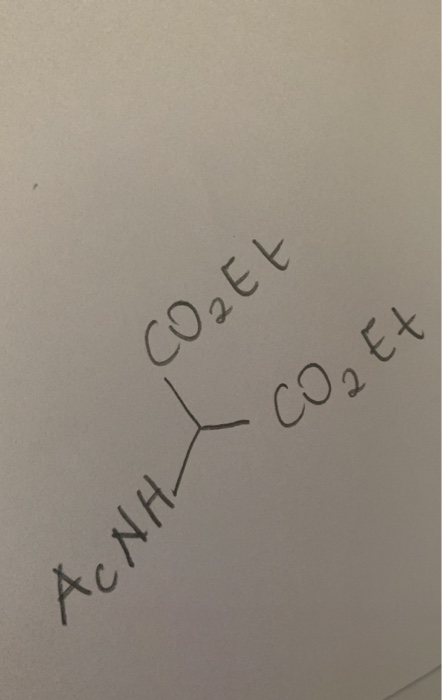 CO₂Et
CO₂Et
AcNH